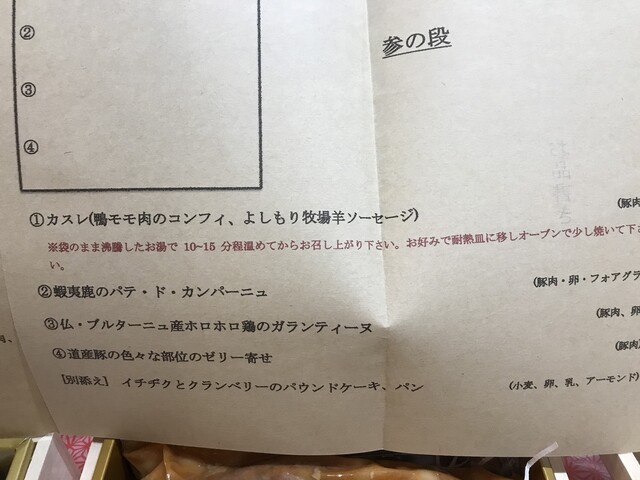 ②
参の段
③
④
①カスレ(鴨モモ肉のコンフィ、よしもり牧場羊ソーセージ)
(豚肉
※袋のまま沸騰したお湯で 10~15 分程温めてからお召し上がり下さい。お好みで耐熱皿に移しオーブンで少し焼いて下さ
い。
②蝦夷鹿のパテ・ド・カンパーニュ
(豚肉・卵・フォアグラ
③仏・ブルターニュ産ホロホロ鶏のガランティーヌ
(豚肉、卵
④道産豚の色々な部位のゼリー寄せ
(豚肉)
[別添え] イチヂクとクランベリーのパウンドケーキ、パン
(小麦、卵、乳、アーモンド)